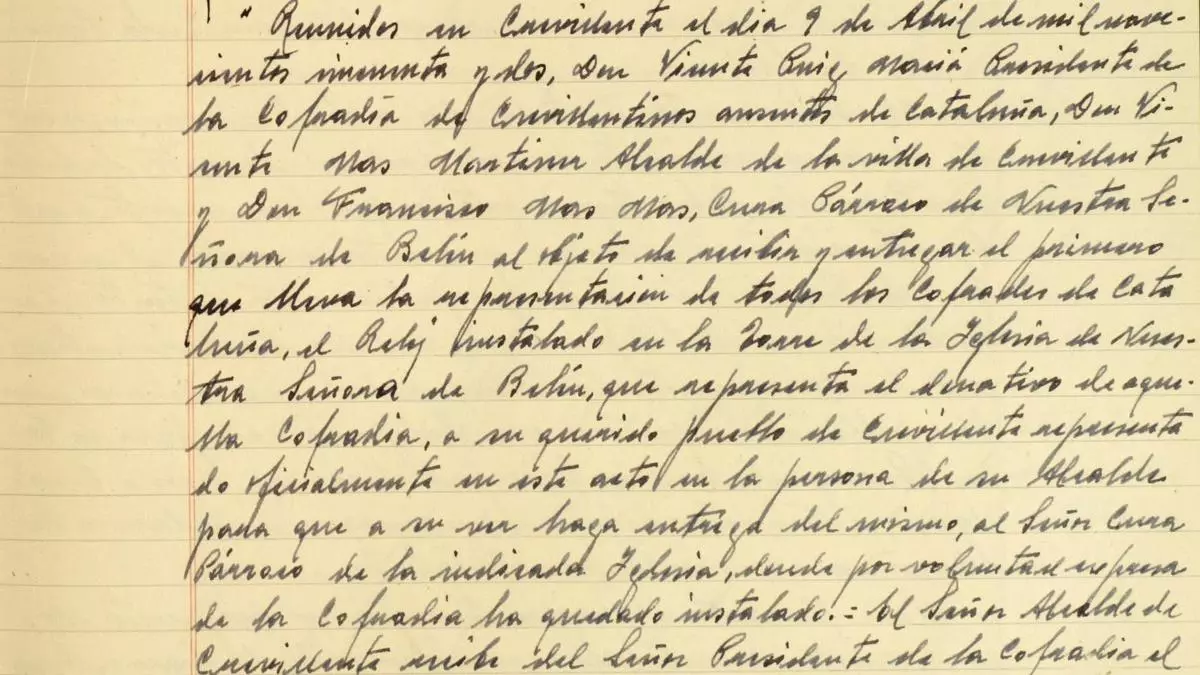 " Reunidos en Crevillente el dia 9 de Abril de mil nove-
cientos cincuenta y dos, Don Vicente Puig Maciá Presidente de
la Cofradía de Crevillentinos ausentes de Cataluña, Don Vi-
cente Mas Martinez Alcalde de la villa de Crevillente
y Don Francisco Mas Mas, Cura Párroco de Nuestra Se-
ñora de Belén al objeto de recibir y entregar el primero
que lleva la representación de todos los Cofrades de Cata
luña, el Reloj instalado en la Torre de la Iglesia de Nues-
tra Señora de Belén, que representa el donativo de aque-
lla Cofradia, a su querido pueblo de Crevillente representa
do oficialmente en este acto en la persona de su Alcalde
para que a su vez haga entrega del mismo, al Señor Cura
Párroco de la indicada Iglesia, donde por voluntad expresa
de la Cofradia ha quedado instalado.= El Señor Alcalde de
Crevillente recibe del Señor Presidente de la Cofradia el